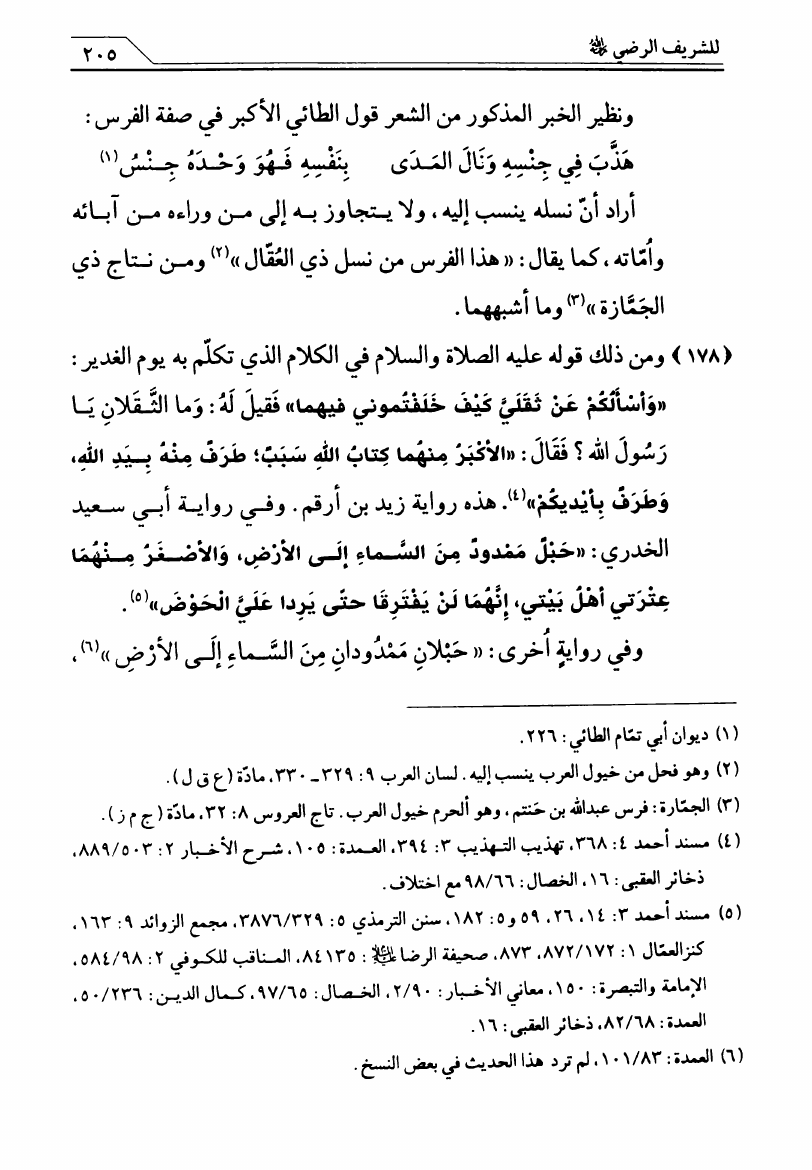 للشريف الرضي ﷺ
٢٠٥
ونظير الخبر المذكور من الشعر قول الطائي الأكبر في صفة الفرس:
هَذَّبَ فِي جِنْسِهِ وَنَالَ المَـدَى بِنَفْسِهِ فَـهُوَ وَحْـدَهُ جِـنْسُ(١)
أراد أنّ نسله ينسب إليه، ولا يـتجاوز بـه إلى مـن وراءه مـن آبـائه
وأُمّاته، كما يقال: «هذا الفرس من نسل ذي العُقّال»(٢) ومـن نـتاج ذي
الجَمَّازة»(٣) وما أشبههما.
(١٧٨) ومن ذلك قوله عليه الصلاة والسلام في الكلام الذي تكلّم به يوم الغدير:
«وَأسْألُكُمْ عَنْ ثَقَلَيَّ كَيْفَ خَلَفْتُموني فيهما» فَقيلَ لَهُ: وَما الثَّـقَلانِ يَـا
رَسُولَ الله؟ فَقَالَ: «الأكْبَرُ مِنهُما كِتابُ اللهِ سَبَبٌ؛ طَرَفٌ مِنْهُ بِـيَدِ اللهِ،
وَطَرَفٌ بِأيْديكُمْ»(٤). هذه رواية زيد بن أرقم. وفـي روايـة أبـي سـعيد
الخدري: «حَبْلٌ مَمْدودٌ مِنَ السَّـماءِ إلَـى الأرْضِ، وَالأصْـغَرُ مِـنْهُمَا
عِتْرَتي أهْلُ بَيْتي، إنَّهُمَا لَنْ يَفْتَرِقَا حتّى يَرِدا عَلَيَّ الْحَوْضَ»(٥).
وفي روايةٍ أُخرى: «حَبْلانِ مَمْدُودانِ مِنَ السَّـماءِ إلَـى الأرْضِ»(٦)،
(١) ديوان أبي تمّام الطائي: ٢٢٦.
(٢) وهو فحل من خيول العرب ينسب إليه. لسان العرب ٩: ٣٢٩ـ ٣٣٠، مادّة (ع ق ل).
(٣) الجمّارة: فرس عبدالله بن حَنتم، وهو ألحرم خيول العرب. تاج العروس ٨: ٣٢، مادّة (ج م ز).
(٤) مسند أحمد ٤: ٣٦٨، تهذيب التـهذيب ٣: ٣٩٤، العـمدة: ١٠٥، شـرح الأخـبار ٢: ٨٨٩/٥٠٣،
ذخائر العقبى: ١٦، الخصال: ٩٨/٦٦ مع اختلاف.
(٥) مسند أحمد ٣: ١٤، ٢٦، ٥٩ و٥: ١٨٢، سنن الترمذي ٥: ٣٨٧٦/٣٢٩، مجمع الزوائد ٩: ١٦٣،
كنزالعمّال ١: ٨٧٢/١٧٢، ٨٧٣، صحيفة الرضا ﷺ: ٨٤١٣٥، المـناقب للكـوفي ٢: ٥٨٤/٩٨،
الإمامة والتبصرة: ١٥٠، معاني الأخـبار: ٢/٩٠، الخـصال: ٩٧/٦٥، كـمال الديـن: ٥٠/٢٣٦،
العمدة: ٨٢/٦٨، ذخائر العقبى: ١٦.
(٦) العمدة: ١٠١/٨٣، لم ترد هذا الحديث في بعض النسخ.